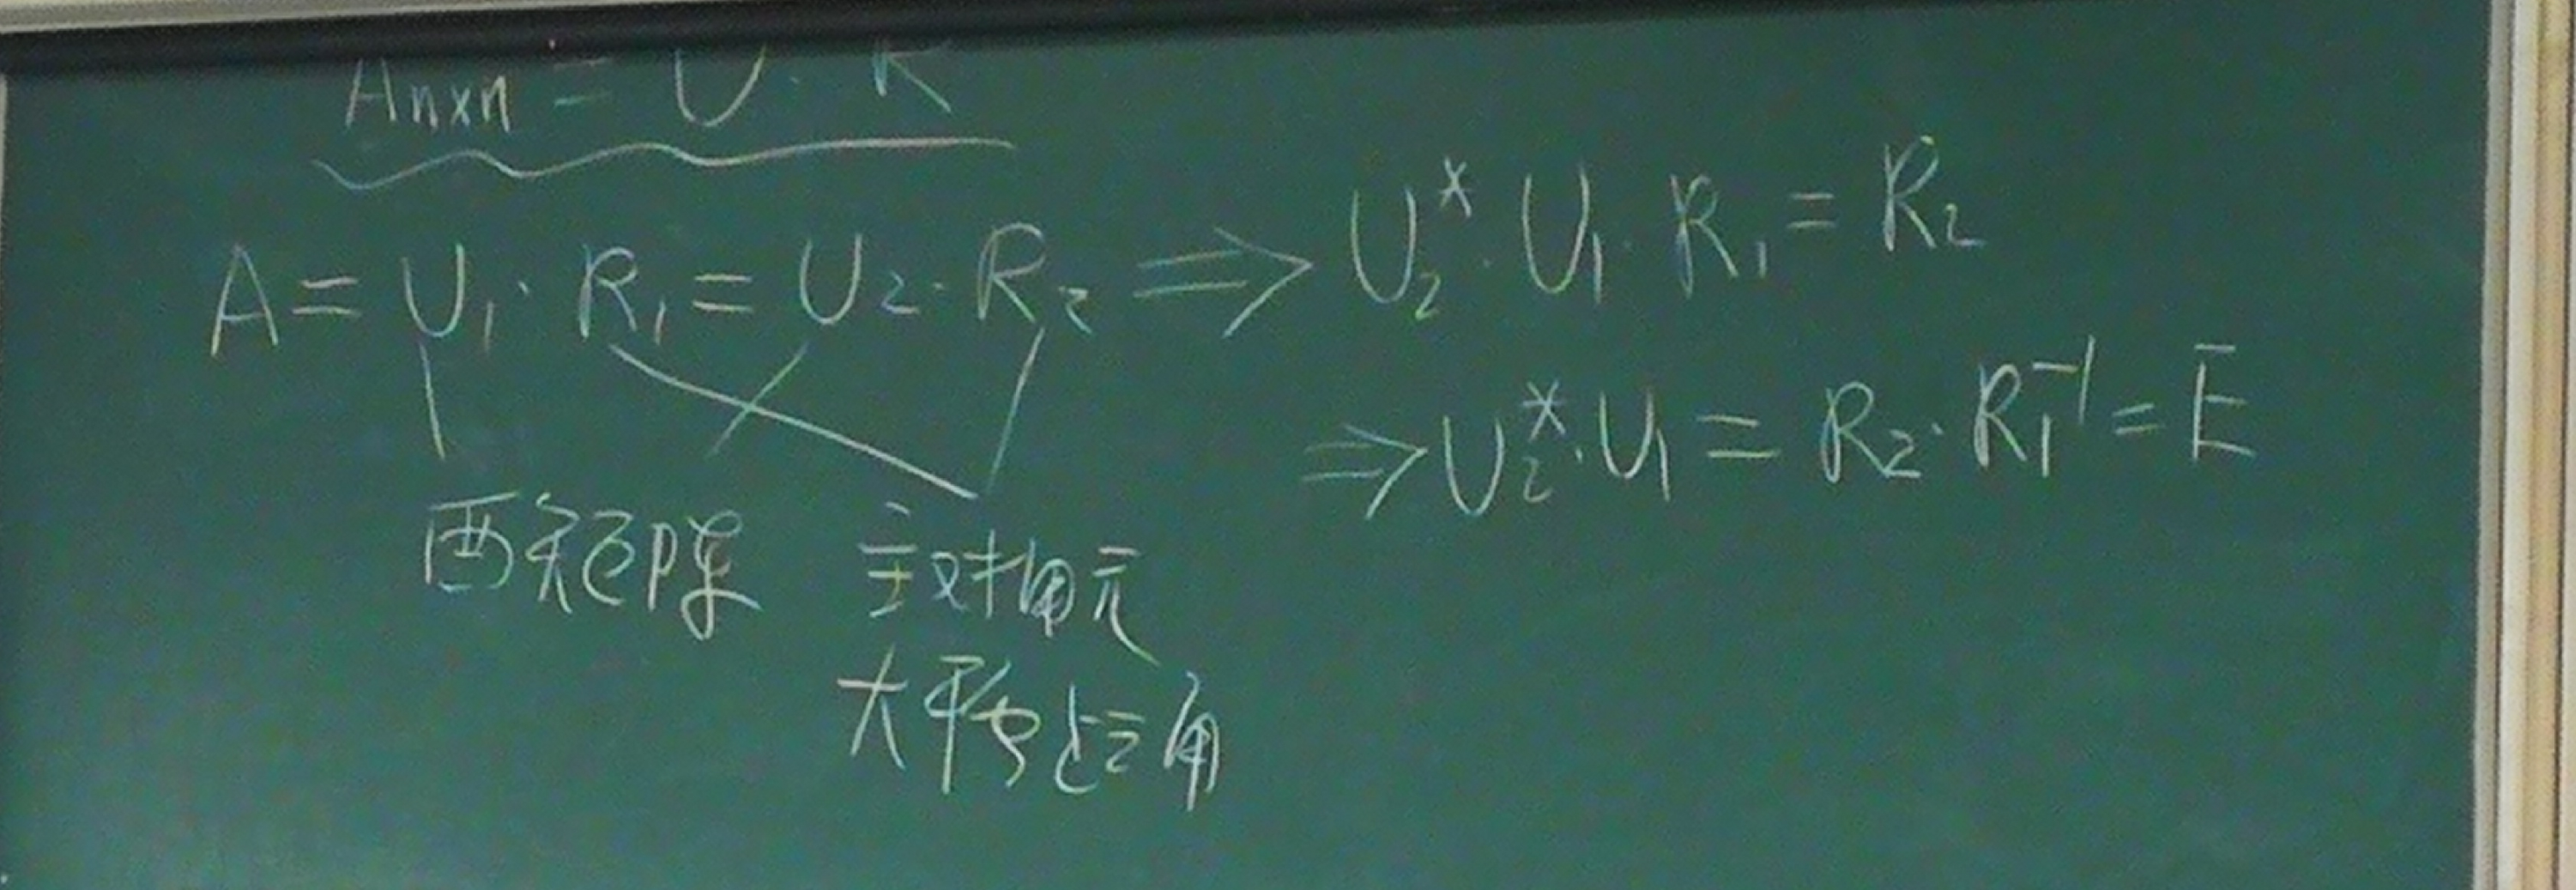 Anxn = U · R
A = U₁ · R₁ = U₂ · R₂ ⟹ U₂* · U₁ · R₁ = R₂
⟹ U₂* · U₁ = R₂ · R₁⁻¹ = E
酉矩阵 主对角元
大于零上三角